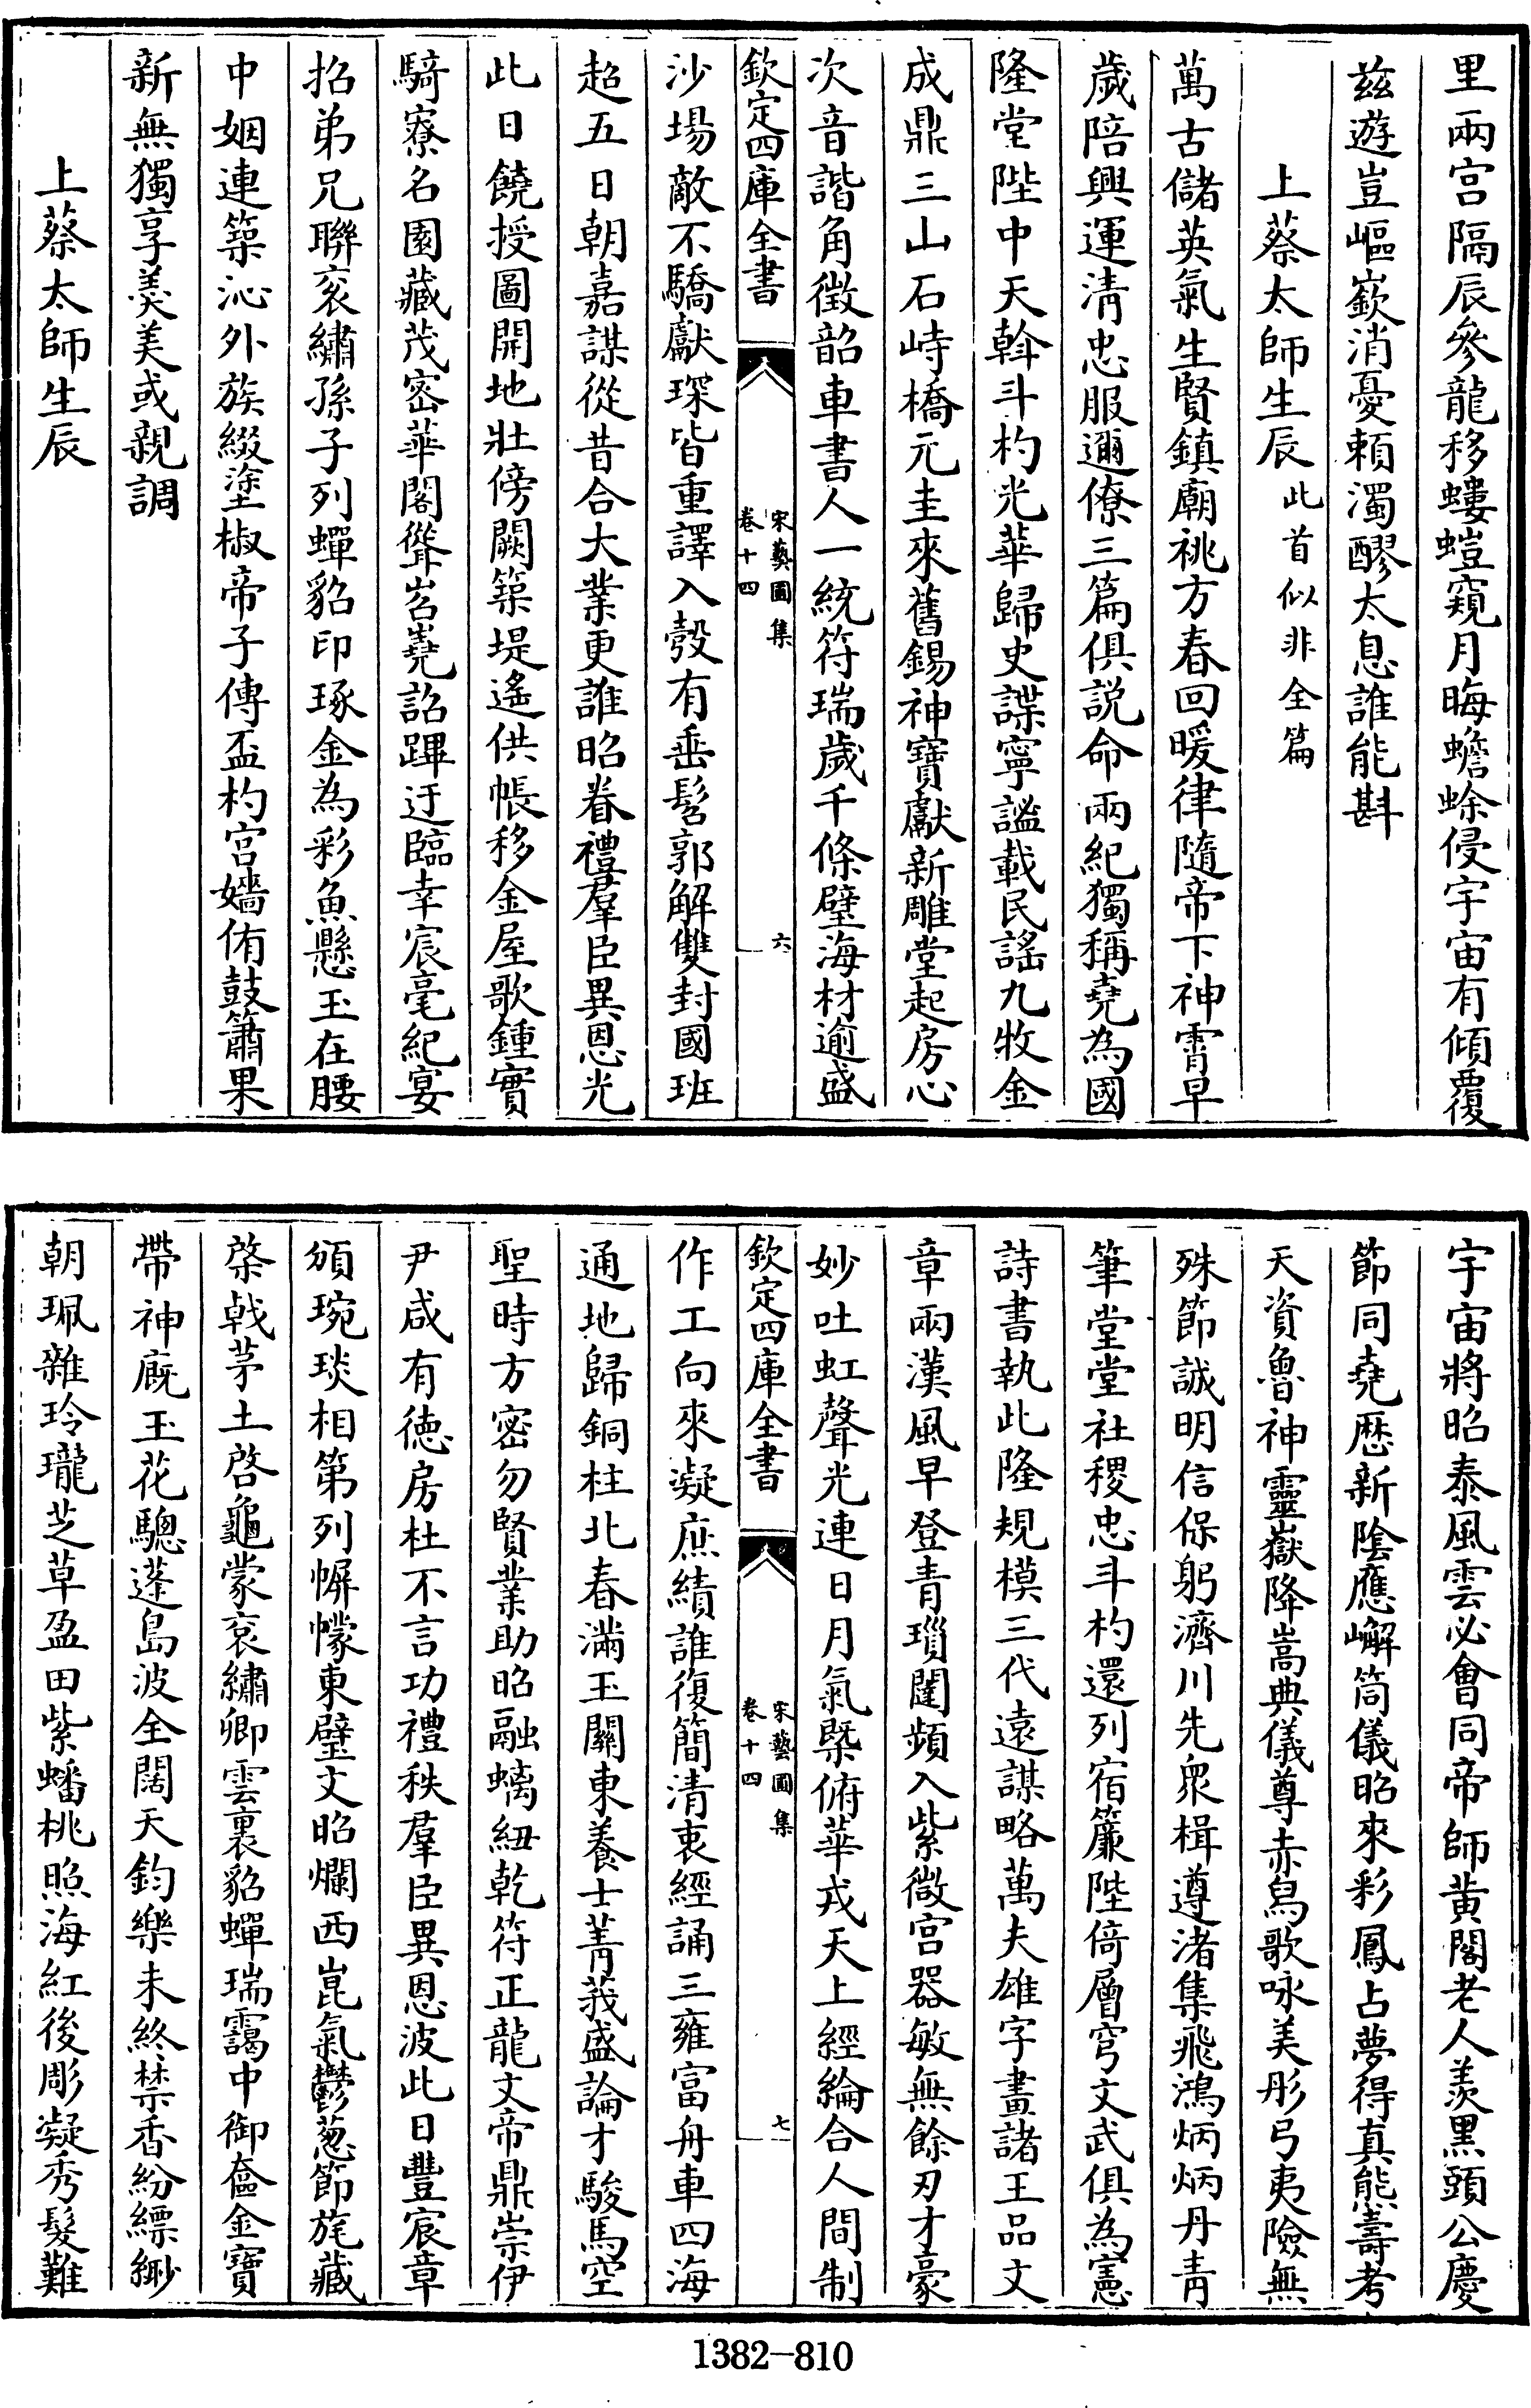 里兩宫隔辰參龍移螻螘窺月晦蟾蜍侵宇宙有傾覆
兹遊豈嶇嶔消憂頼濁醪太息誰能斟
上蔡太師生辰此首似非全篇
萬古儲英氣生賢鎮廟祧方春回暖律隨帝下神霄早
歲陪興運清忠服邇僚三篇俱説命兩紀獨稱堯為國
隆堂陛中天斡斗杓光華歸史諜寧謐載民謡九牧金
成鼎三山石峙橋元圭來舊錫神寶獻新雕堂起房心
次音諧角徴韶車書人一統符瑞歲千條璧海材逾盛
欽定四庫全書
宋藝圃集
卷十四
六
沙場敵不驕獻琛皆重譯入彀有垂髫郭解雙封國班
超五日朝嘉謀從昔合大業更誰昭眷禮羣臣異恩光
此日饒授圖開地壯傍闕築堤遙供帳移金屋歌鍾實
騎寮名園藏茂密華閣聳岧嶤詔蹕迂臨幸宸毫紀宴
招弟兄聯衮繡孫子列蟬貂印琢金為彩魚懸玉在腰
中姻連築沁外族綴塗椒帝子傳盃杓宫嬙侑鼓簫果
新無獨享羮美或親調
上蔡太師生辰
宇宙將昭泰風雲必會同帝師黄閣老人羨黑頭公慶
節同堯厯新陰應嶰筒儀昭來彩鳳占夢得真熊壽考
天資魯神靈嶽降嵩典儀尊赤舄歌咏美彤弓夷險無
殊節誠明信保躬濟川先衆楫遵渚集飛鴻炳炳丹青
筆堂堂社稷忠斗杓還列宿簾陛倚層穹文武俱為憲
詩書執此隆規模三代遠謀略萬夫雄字畫諸王品文
章兩漢風早登青瑣闥頻入紫微宫器敏無餘刃才豪
妙吐虹聲光連日月氣槩俯華戎天上經綸合人間制
欽定四庫全書
宋藝圃集
卷十四
七
作工向來凝庶績誰復簡清衷經誦三雍富舟車四海
通地歸銅柱北春滿玉關東養士菁莪盛論才駿馬空
聖時方密勿賢業助昭融螭紐乾符正龍文帝鼎崇伊
尹咸有徳房杜不言功禮秩羣臣異恩波此日豐宸章
頒琬琰相第列帡幪東璧文昭爛西崑氣鬱葱節旄藏
棨㦸茅土啓龜蒙衮繡卿雲裏貂蟬瑞靄中御奩金寶
帶神廐玉花驄蓬島波全闊天鈞樂未終禁香紛縹緲
朝珮雜玲瓏芝草盈田紫蟠桃照海紅後彫凝秀髮難
1382—810